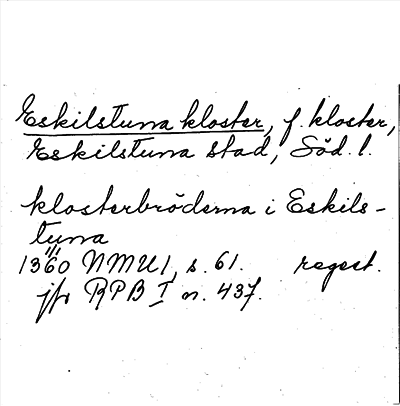 Eskilstuna kloster, f. kloster,
Eskilstuna stad, Söd. l.
klosterbröderna i Eskils-
tuna
1/1
1360 NMU 1, s. 61. regest.
jfr RPB I n. 437.